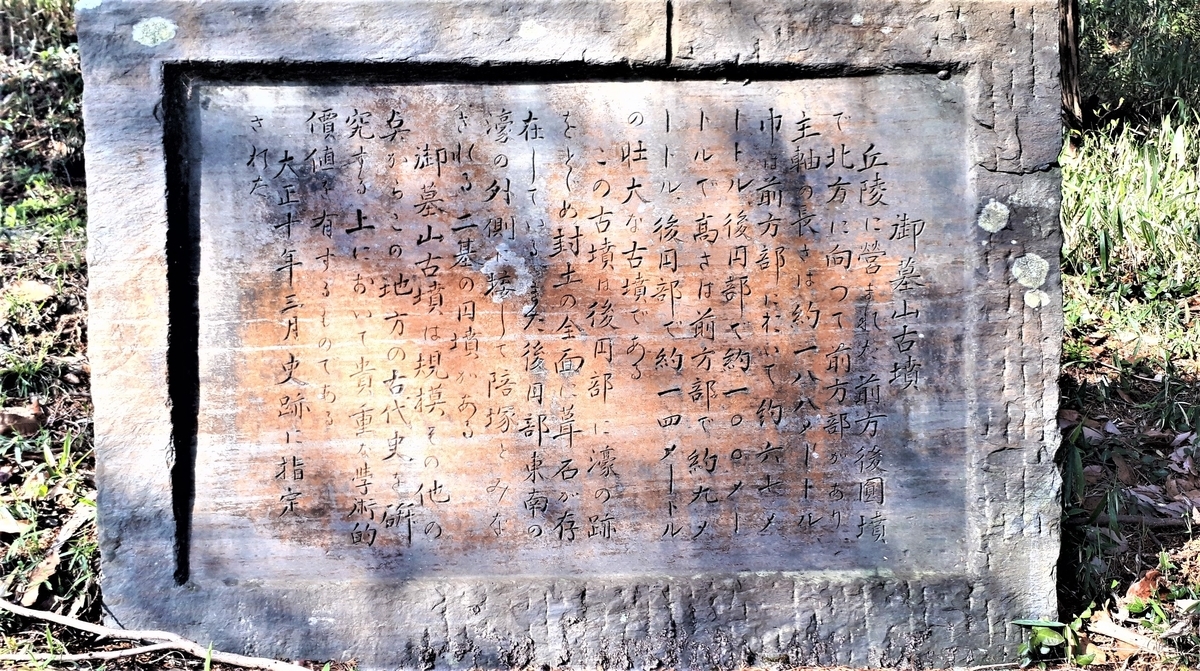 御墓山古墳
丘陵に営まれた前方後圓墳
で北方に向つて前方部があり
主軸の長さは約一八八メートル
巾は前方部において約六七メ
ートル、後円部で約一〇〇メー
トルで高さは前方部で約九メ
ートル、後円部で約一四メートル
の壮大な古墳である
この古墳は後円部に濠の跡
をとどめ封土の全面に葺石が存
在している。また後円部東南の
濠の外側に接して陪塚とみな
される二基の円墳がある
御墓山古墳は規模その他の
点からこの地方の古代史を研
究する上において貴重な学術的
價値を有するものである
大正十年三月史跡に指定
された